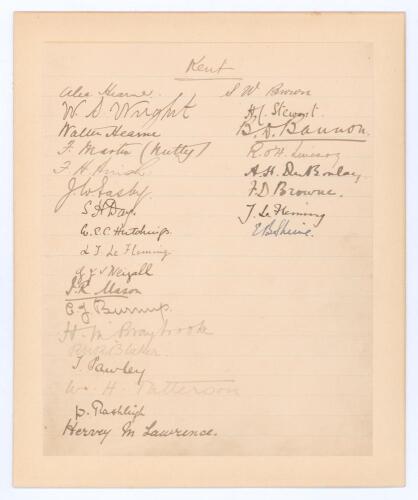 Kent
Alec Hearne.
W. S. Wright
Walter Hearne
F. Martin (Nutty)
F. H. Huish
J. W. Easby.
S H Day.
W. E. C. Hutchings.
L T. Le Fleming.
G J V Weigall
J. R. Mason
C J Burnup.
H. M Braybrook
R N R Blaker.
T. Pawley
Wm. H. Patterson
W. Rashleigh
Hervey M Lawrence.
S W Brown
H. C. Stewart.
B. D. Bannon.
R. O'H. Livesay
A. H. Du Boulay
F. D Browne.
J. Le Fleming
E B Shine.